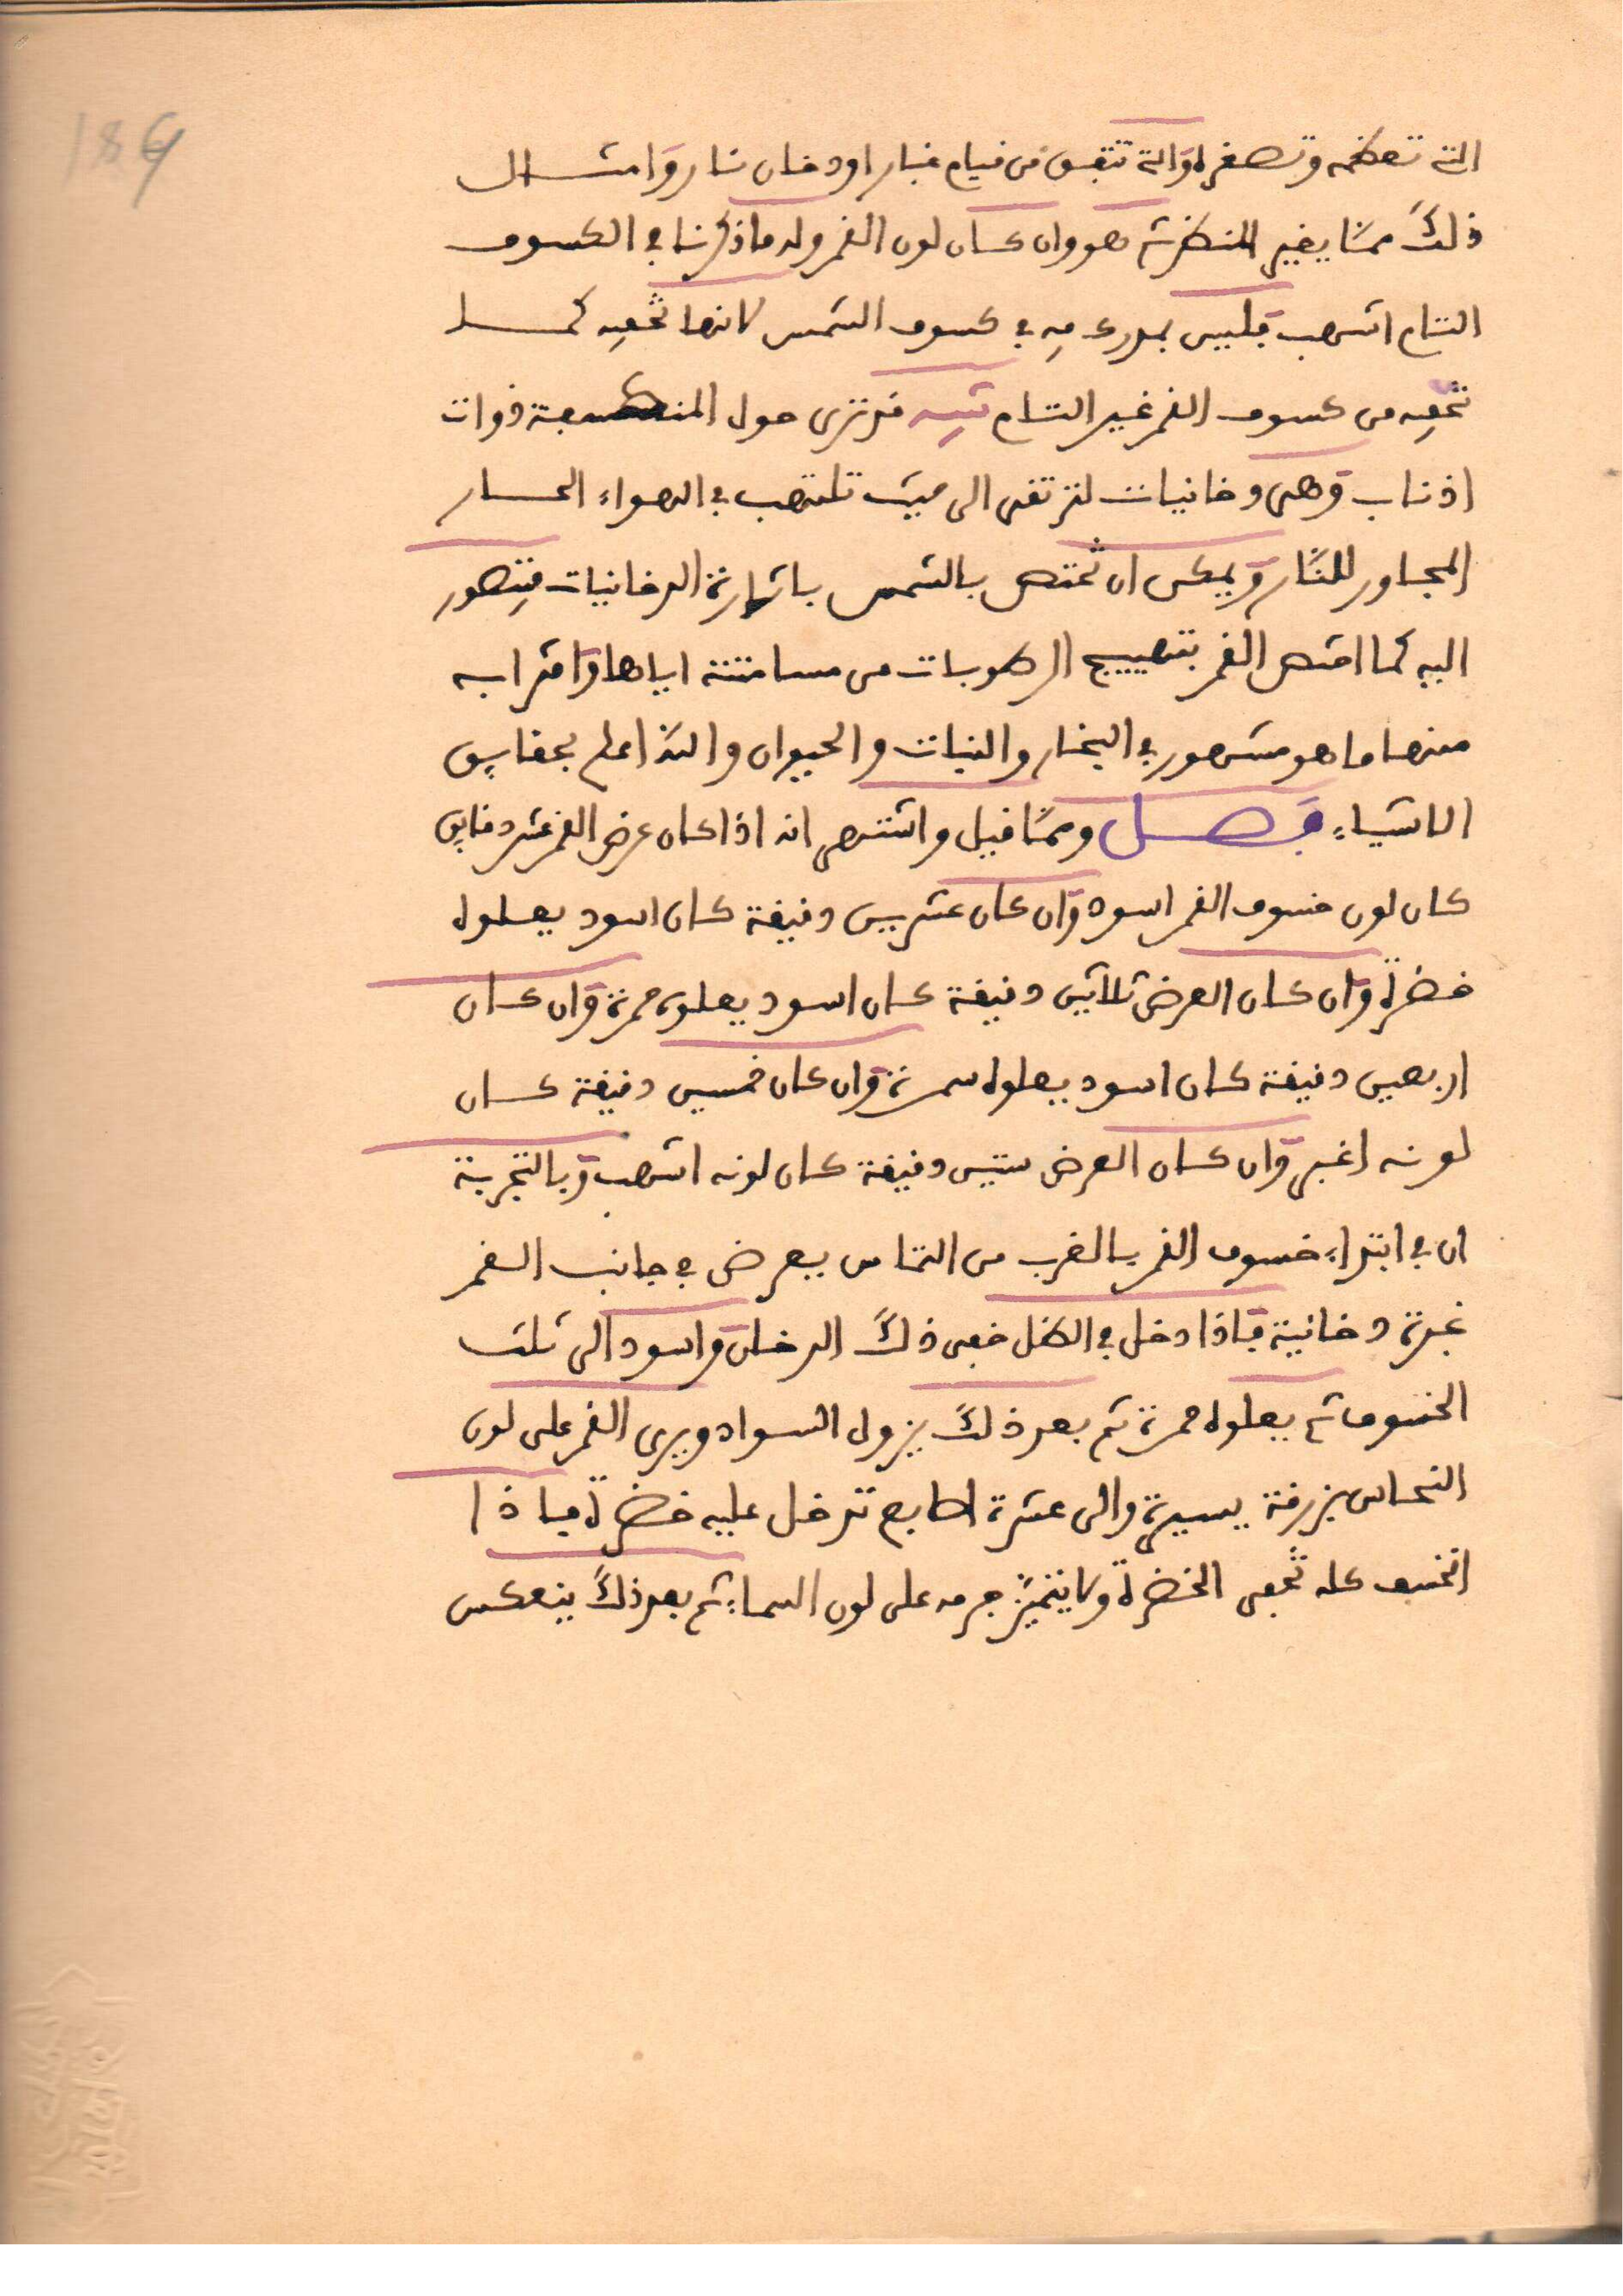 186
التي تعظمه وتصغره والتي تتفق من قيام غبار او دخان نار وامثال
ذلك ممّا يغير المنظر ثم هو وان كان لون القمر وله ما ذكرنا في الكسوف
التام اشهب فليس بمدرك فيه في كسوف الشمس لانها تخفيه كما
تخفيه من كسوف القمر غير التام تنبيه قد ترى حول المنكسفة ذوات
اذناب وهى دخانيات لترتقى الى حيث تلتهب في الهواء الحار
المجاور للنّار ويمكن ان تختص بالشمس باثارة الدخانيات
اليه كما اختص القمر بتهييج الرطوبات من مسامتته اياها واقترابه
منها ما هو مشهور في البخار والنبات والحيوان والله اعلم بحقايق
الاشياء فصل وممّا قيل واشتهر انه اذا كان عرض القمر عشر دقايق
كان لون خسوف القمر اسود وان كان عشرين دقيقة كان اسود يعلوه
خضرة وان كان العرض ثلاثين دقيقة كان اسود يعلوه حمرة وان كان
اربعين دقيقة كان اسود يعلوه سمرة وان كان خمسين دقيقة كان
لونه اغبر وان كان العرض ستين دقيقة كان لونه اشهب وبالتجربة
ان في ابتداء خسوف القمر بالقرب من التماس يعرض في جانب القمر
غبرة دخانية فاذا دخل في الظل خفى ذلك الدخان واسود الى ثلث
الخسوف ثم يعلوه حمرة ثم بعد ذلك يزول السواد ويرى القمر على لون
النحاس بزرقة يسيرة والى عشرة اصابع تدخل عليه خضرة فاذا
انخسف كله تخفى الخضرة ولا يتميّز جرمه على لون السماء ثم بعد ذلك ينعكس